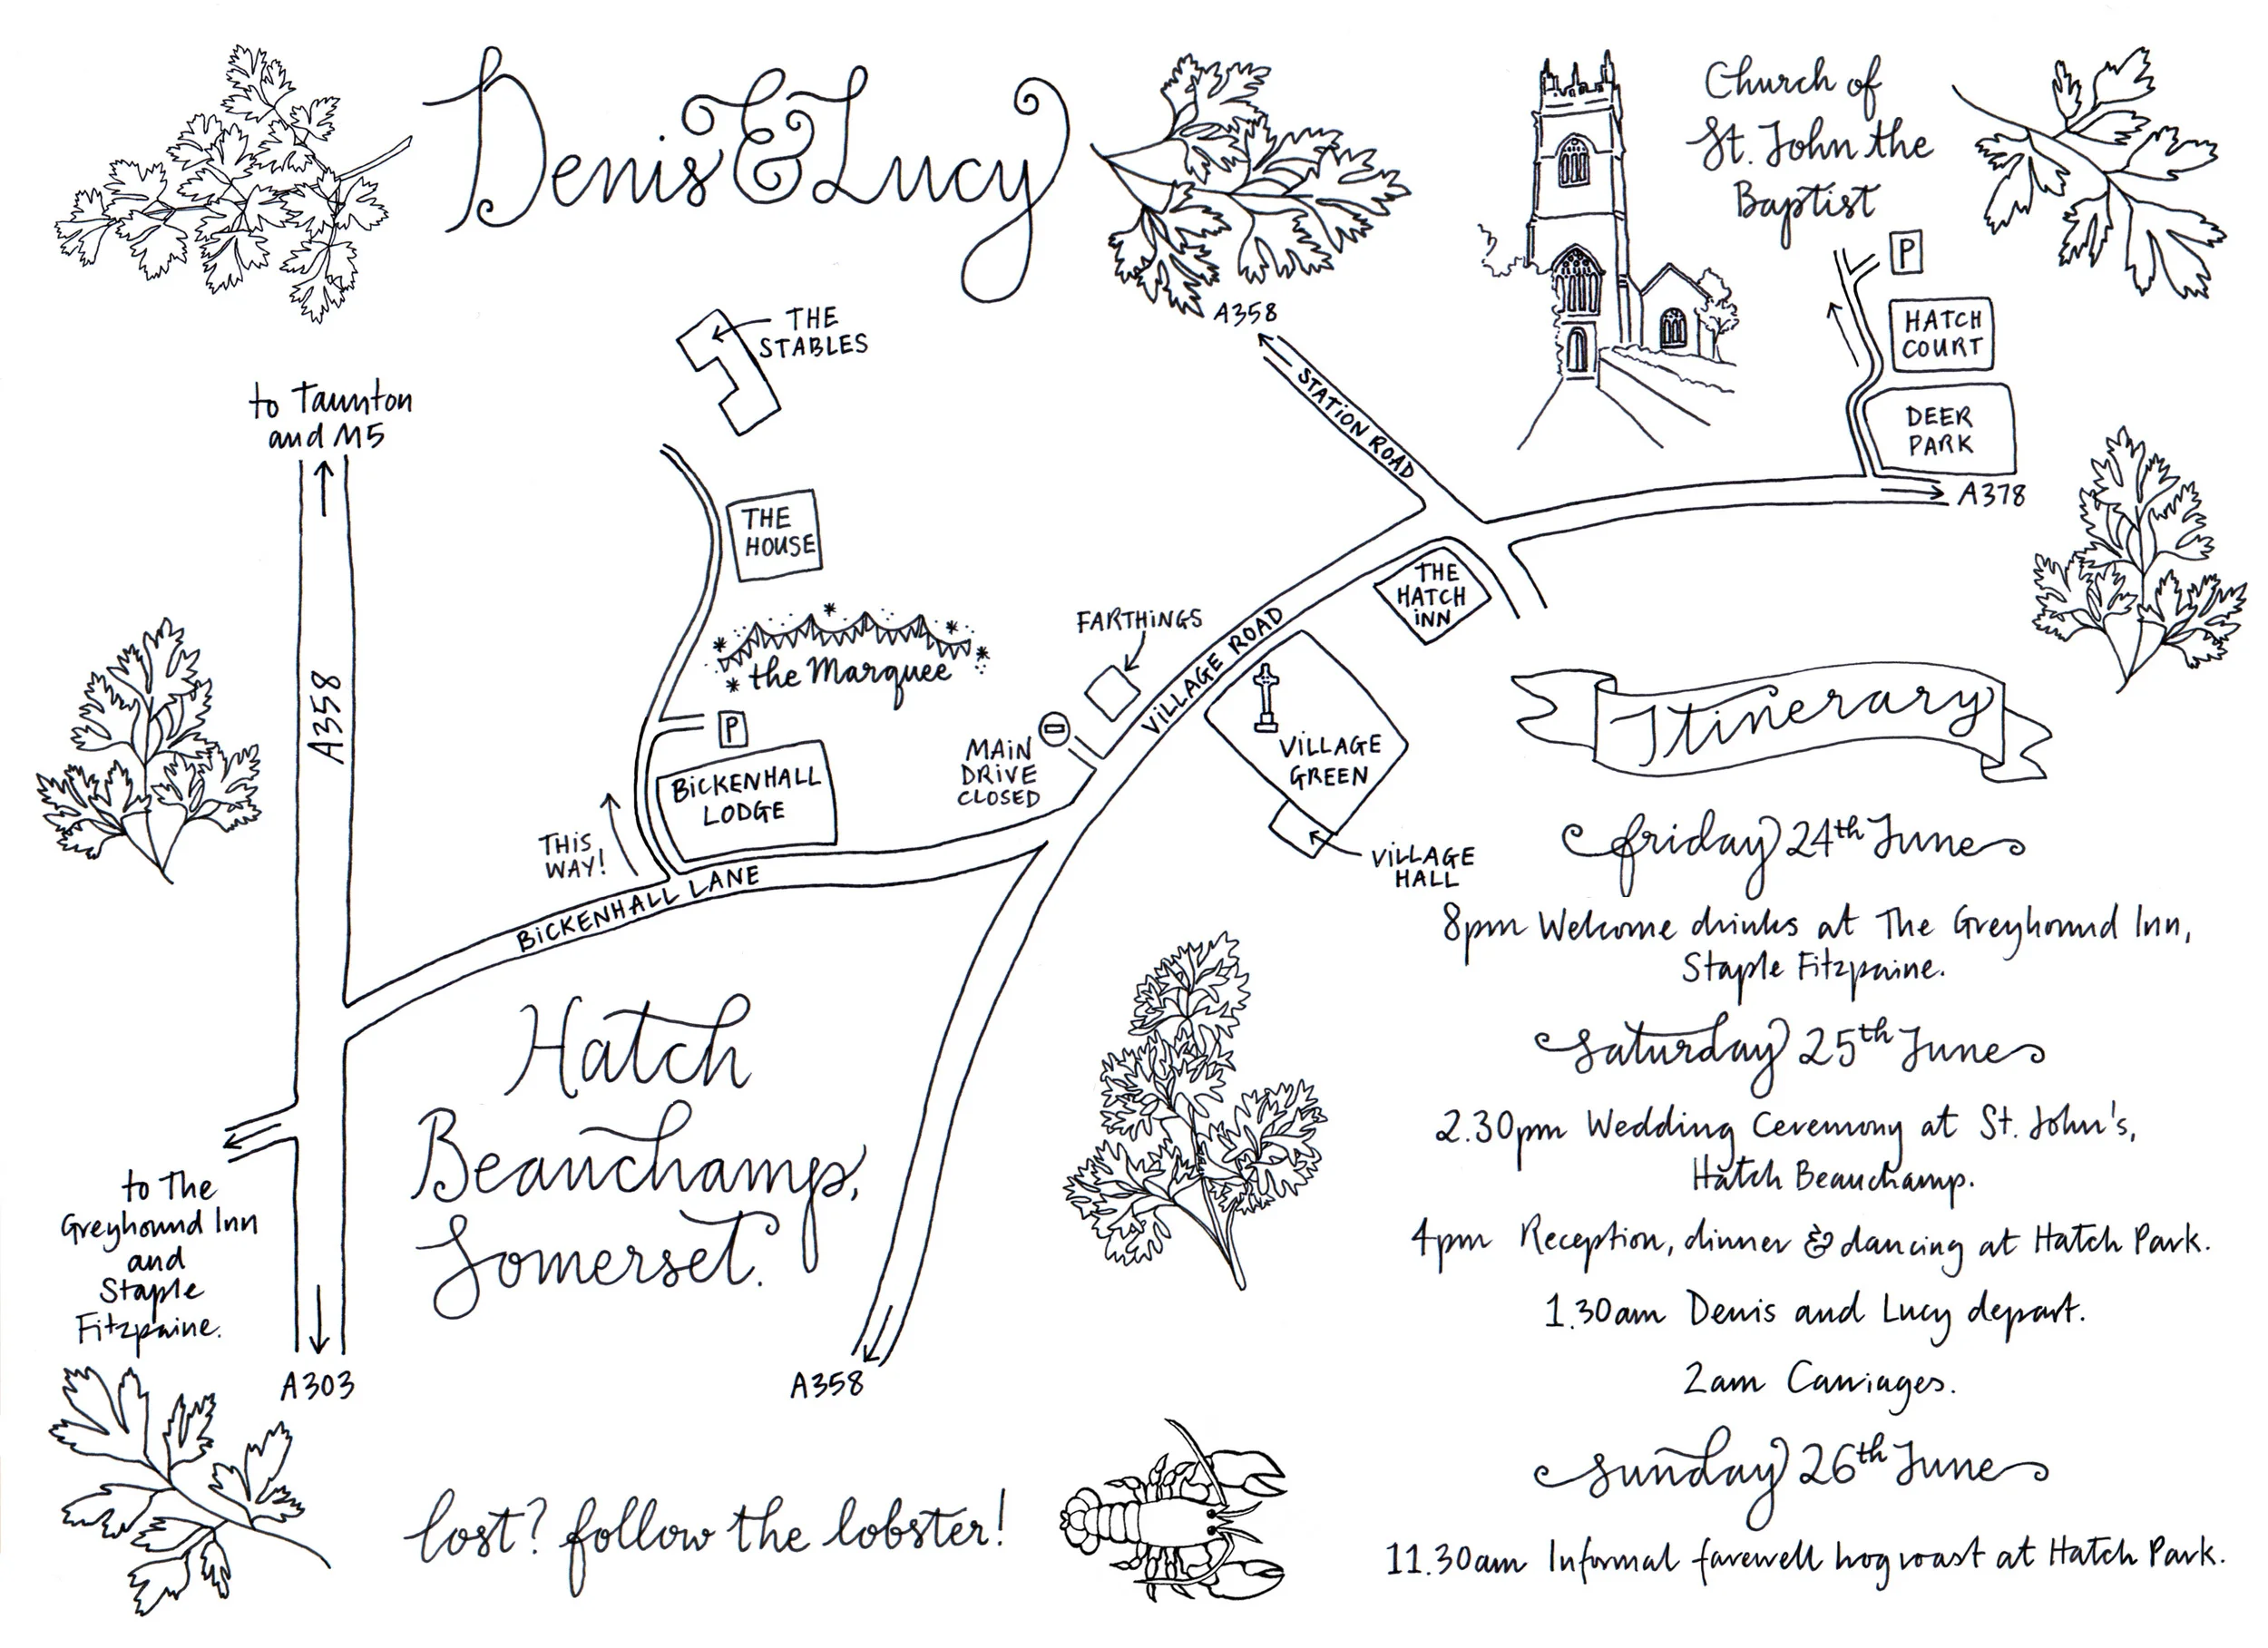 Denis & Lucy
Church of
St. John the
Baptist
P
HATCH
COURT
DEER
PARK
A378
A358
STATION ROAD
THE
STABLES
to Taunton
and M5
A358
THE
HOUSE
the Marquee
P
BICKENHALL
LODGE
THIS
WAY!
BICKENHALL LANE
FARTHINGS
MAIN
DRIVE
CLOSED
VILLAGE ROAD
THE
HATCH
INN
VILLAGE
GREEN
VILLAGE
HALL
Hatch
Beauchamp,
Somerset.
to The
Greyhound Inn
and
Staple
Fitzpaine.
A303
A358
lost? follow the lobster!
Itinerary
friday 24th June
8pm Welcome drinks at The Greyhound Inn,
Staple Fitzpaine.
saturday 25th June
2.30pm Wedding Ceremony at St. John's,
Hatch Beauchamp.
4pm Reception, dinner & dancing at Hatch Park.
1.30am Denis and Lucy depart.
2am Carriages.
sunday 26th June
11.30am Informal farewell hog roast at Hatch Park.